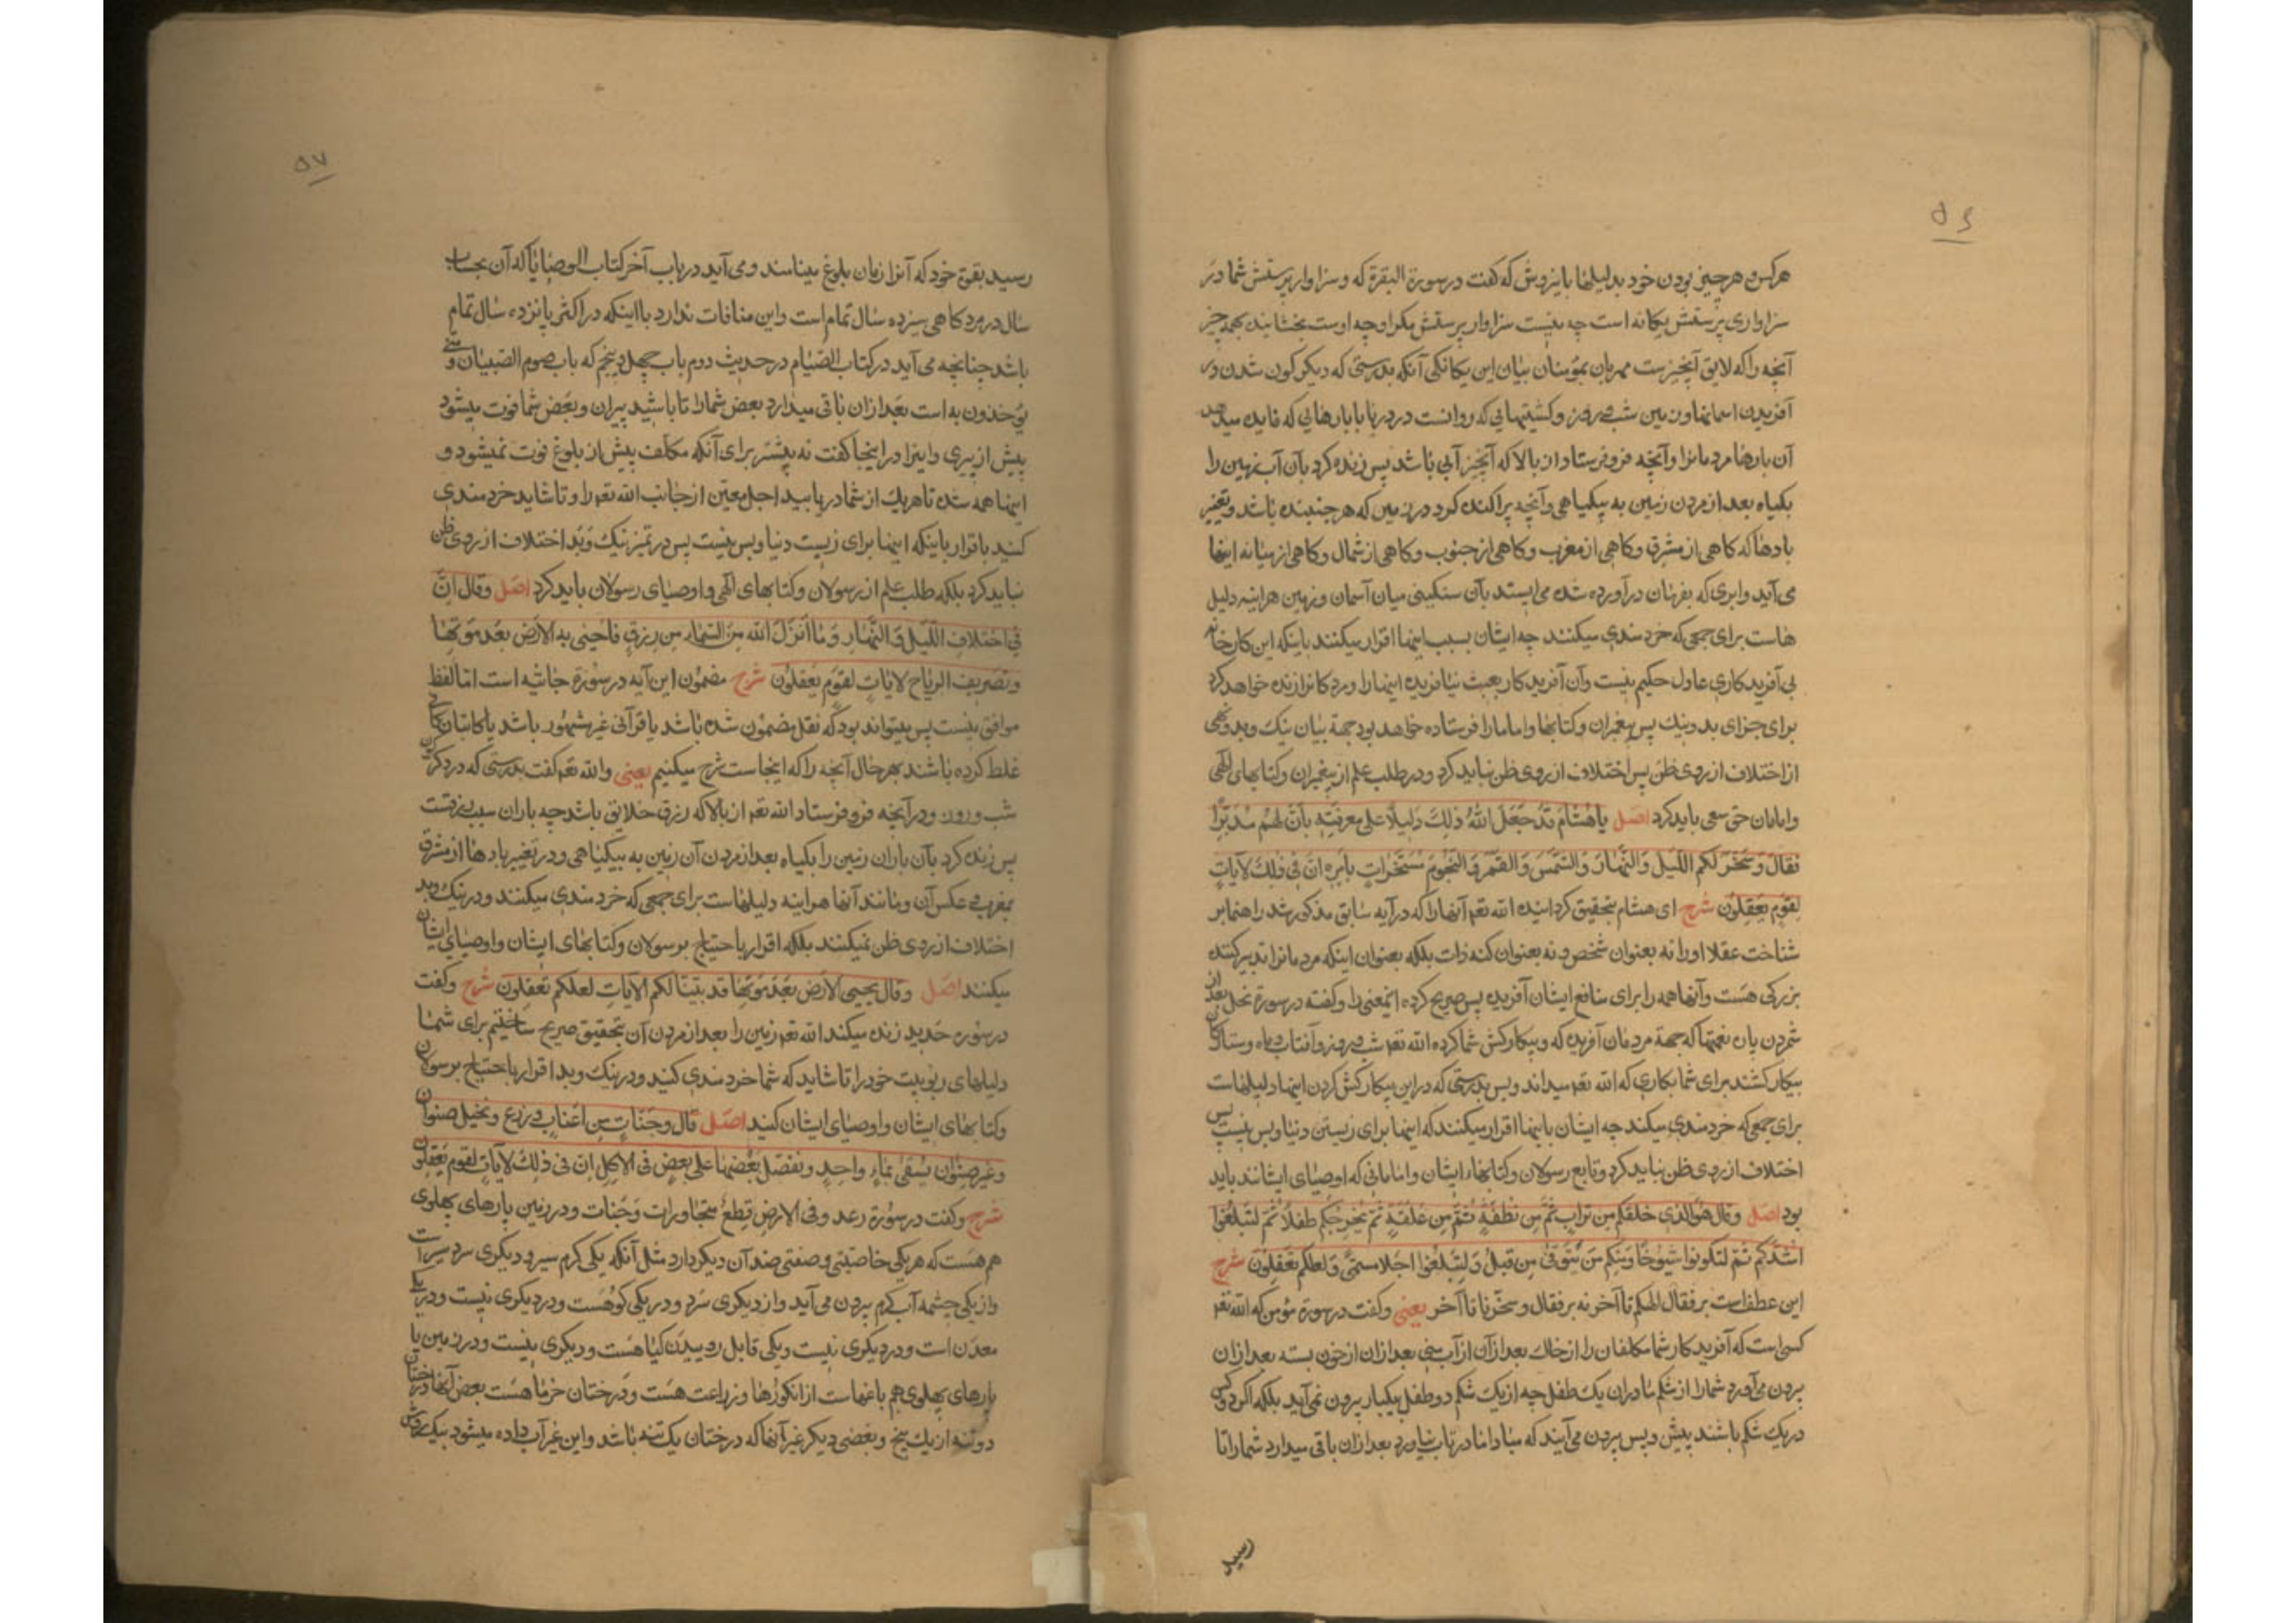 ۵۶
هرکس و هر چیز بودن خود بدلیلها باین روش که گفت در سورة البقرة که و سزاوار پرستش شما در
سزاواری پرستش یکانه است چه نیست سزاوار پرستش مکر او چه اوست بخشاینده بهمه چیز
آنچه را که لایق آنچیزست مهربان بمؤمنان بیان این یکانکی آنکه بدرستی که دیکرکون شدن و در
آفریدن اسمانها و زمین و شب و روز و کشتیهایی که روانست در دریا با بارهایی که فایده میدهد
آن بارها مردمانرا و آنچه فرو فرستاد از بالا که آنچیز آبی باشد پس زنده کرد بآن آب زمین را
بکیاه بعد از مردن زمین به بیکیاهی و آنچه پراکنده کرد در زمین که هر جنبنده باشد و تغییر
بادها که کاهی از مشرق و کاهی از مغرب و کاهی از جنوب و کاهی از شمال و کاهی از میانه اینها
می‌آید و ابری که بفرمان درآورده شده می‌ایستد بآن سنکینی میان آسمان و زمین هراینه دلیل
هاست برای جمعی که خردمندی میکنند چه ایشان بسبب اینها اقرار میکنند باینکه این کارخانه
بی آفریدکاری عادل حکیم نیست و آن آفریدکار بعبث نیافریده اینها را و مردکانرا زنده خواهد کرد
برای جزای بد و نیک پس پیغمبران و کتابها و امامان را فرستاده خواهد بود جهة بیان نیک و بد و نهی
از اختلاف از روی ظن پس اختلاف از روی ظن نباید کرد و در طلب علم از پیغمبران و کتابهای الهی
و امامان حق سعی باید کرد اصل یا هشام قد جعل الله ذلك دلیلا علی معرفته بان لهم مدبرا
فقال و سخر لکم اللیل و النهار و الشمس و القمر و النجوم مسخرات بامره ان فی ذلك لآیات
لقوم یعقلون شرح ای هشام بتحقیق کردانیده الله تعم آنها را که در آیه سابق مذکور شد راهنما بر
شناخت عقلا او را نه بعنوان شخص و نه بعنوان کنه ذات بلکه بعنوان اینکه مردمانرا تدبیر کننده
بزرکی هست و آنها همه را برای منافع ایشان آفریده پس صریح کرده اینمعنی را و کفته در سورة نحل بعد از
شمردن پاره نعمتها که جهة مردمان آفریده که و بیکار و کش شما کرده الله تعم شب و روز و آفتاب و ماه و ستارکان
بیکار کشند برای شما بکاری که الله تعم میداند و بس بدرستی که در این بیکار کش کردن اینها دلیلهاست
برای جمعی که خردمندی میکنند چه ایشان باینها اقرار میکنند که اینها برای زیستن دنیا و بس نیست پس
اختلاف از روی ظن نباید کرد و تابع رسولان و کتابهاء ایشان و امامانی که اوصیای ایشانند باید
بود اصل و قال هو الذی خلقکم من تراب ثم من نطفة ثم من علقة ثم یخرجکم طفلا ثم لتبلغوا
اشدکم ثم لتکونوا شیوخا و منکم من یتوفی من قبل و لتبلغوا اجلا مسمی و لعلکم تعقلون شرح
این عطفست بر فقال الهکم تا آخر نه بر فقال و سخر نا تا آخر یعنی و کفت در سورة مؤمن که الله تعم
کسی است که آفرید کار شما مکلفان را از خاك بعد از آن از آب منی بعد از آن از خون بسته بعد از ان
برون می‌آورد شما را از شکم مادران یک طفل چه از یک شکم دو طفل بیکبار برون نمی‌آید بلکه اکر دو کس
در یک شکم باشند پیش و پس برون می‌آیند که مبادا مادر تاب نیاورد بعد از ان باقی میدارد شما را تا
رسید
۵۷
رسید بقوة خود که آنرا زمان بلوغ مینامند و می‌آید در باب آخر کتاب الوصایا که آن بحساب
سال در مرد کاهی سیزده سال تمام است و این منافات ندارد با اینکه در اکثر پانزده سال تمام
باشد چنانچه می‌آید در کتاب الصیام در حدیث دوم باب چهل و پنجم که باب صوم الصبیان و متی
یؤخذون به است بعد از ان باقی میدارد بعض شما را تا باشید پیران و بعض شما فوت میشود
پیش از پیری و اینرا در اینجا کفت نه پیشتر برای آنکه مکلف پیش از بلوغ فوت نمیشود و
اینها همه شده تا هر یک از شما دریابید اجل معین از جانب الله تعم را و تا شاید خردمندی
کنید باقرار باینکه اینها برای زیست دنیا و بس نیست پس در تمیز نیک و بد اختلاف از روی ظن
نباید کرد بلکه طلب علم از رسولان و کتابهای الهی و اوصیای رسولان باید کرد اصل و قال ان
فی اختلاف اللیل و النهار و ما انزل الله من السماء من رزق فاحیی به الارض بعد موتها
و تصریف الریاح لایات لقوم یعقلون شرح مضمون این آیه در سورة جاثیه است اما لفظ
موافق نیست پس میتواند بود که نقل بمضمون شده باشد یا قرآنی غیر مشهور باشد یا کاتبان کافی
غلط کرده باشند بهر حال آنچه را که اینجاست شرح میکنیم یعنی و الله تعم کفت بدرستی که در دکرکون
شب و روز و در آنچه فرو فرستاد الله تعم از بالا که رزق خلایق باشد چه باران سبب رزقست
پس زنده کرد بآن باران زمین را بکیاه بعد از مردن آن زمین به بیکیاهی و در تغییر بادها از مشرق
بمغرب و عکس آن و مانند آنها هراینه دلیلهاست برای جمعی که خردمندی میکنند و در نیک و بد
اختلاف از روی ظن نمیکنند بلکه اقرار باحتیاج برسولان و کتابهای ایشان و اوصیای ایشان
میکنند اصل و قال یحیی الارض بعد موتها قد بینا لکم الآیات لعلکم تعقلون شرح و کفت
در سوره حدید زنده میکند الله تعم زمین را بعد از مردن آن بتحقیق صریح ساختیم برای شما
دلیلهای ربوبیت خود را تا شاید که شما خردمندی کنید و در نیک و بد اقرار باحتیاج برسولان
و کتابهای ایشان و اوصیای ایشان کنید اصل قال و جنات من اعناب و زرع و نخیل صنوان
و غیر صنوان یسقی بماء واحد و نفضل بعضها علی بعض فی الاکل ان فی ذلك لآیات لقوم یعقلون
شرح و کفت در سورة رعد و فی الارض قطع متجاورات و جنات و در زمین پارهای پهلوی
هم هست که هر یکی خاصیتی و صفتی ضد آن دیکر دارد مثل آنکه یکی کرم سیر و دیکری سرد سیر است
و از یکی چشمه آب کرم برون می‌آید و از دیکری سرد و در یکی کوه هست و در دیکری نیست و در یکی
معدن است و در دیکری نیست و یکی قابل روییدن کیا هست و دیکری نیست و در زمین با
پارهای پهلوی هم باغهاست از انکورها و زراعت هست و درختان خرما هست بعض آنها درختان
دو تنه از یک بیخ و بعضی دیکر غیر آنها که درختان یک تنه باشد و این غیر آب داده میشود بیک روش